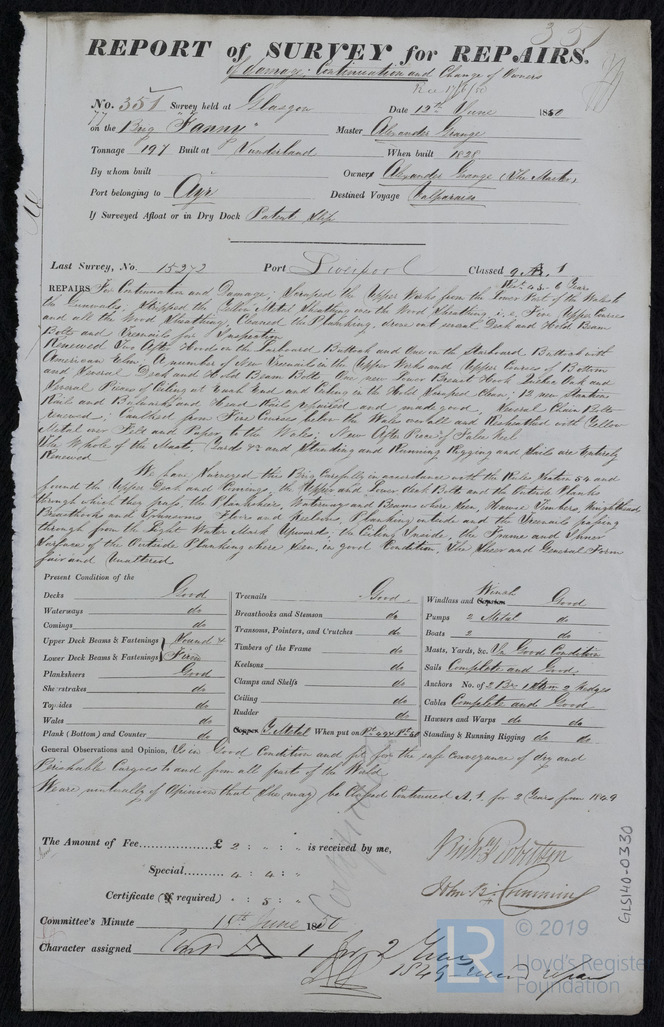 351
REPORT of SURVEY for REPAIRS.
of Damage; Continuation and Change of Owners
No. 351 Survey held at Glasgow Date 12th June 1850
on the Brig "Fanny" Master Alexander Grange
Tonnage 197 Built at Sunderland When built 1828
By whom built Owners Alexander Grange (the Master)
Port belonging to Ayr Destined Voyage Valparaiso
If Surveyed Afloat or in Dry Dock Patent Slip
Last Survey, No. 15272 Port Liverpool Classed A 1
REPAIRS For Continuation and Damage; Scraped the Upper Works from the Lower Part of the Wales to
the Gunwales, Stripped the Yellow Metal Sheathing and the Wood Sheathing i.e. Five Upper Courses
and all the Wood Sheathing, Cleaned the Planking, drove out several Deck and Hold Beam
Bolts and Treenails for Inspection
Renewed Two After Hoods in the Larboard Buttock and One in the Starboard Buttock with
American Elm, A number of New Treenails in the Upper Works and Upper Courses of Bottom
and Several Deck and Hold Beam Bolts One new Lower Breast Hook Oak and
Several Pieces of Ceiling at Each End and Ceiling in the Hold Scraped Clean; 12 new Stantions
Rails and Bulwarks and Head Rails Repaired and made good, Several Chain Bolts
renewed; Caulked from Five Courses below the Wales over all and Resheathed with Yellow
Metal over Felt and Paper to the Wales, New After Piece of False Keel
The Whole of the Masts, Yards &c and Standing and Running Rigging and Sails are Entirely
Renewed
We have Surveyed this Brig Carefully in accordance with the Rules Section 54 and
found the Upper Deck and Comings, the Upper and Lower Deck Bolts and the Outside Planks
through which they pass, the Plansheer, Waterway and Beams where seen, Hawse Timbers, Knightheads
Breasthooks and Transoms, Floors and Keelsons, Planking outside and the Treenails passing
through from the Light Water Mark Upwards, the Ceiling Inside, the Frame and Inner
Surface of the Outside Planking where seen, in good Condition, The Sheer and General Form
fair and Unaltered
Present Condition of the
Decks Good
Waterways do
Comings do
Upper Deck Beams & Fastenings Sound &
Lower Deck Beams & Fastenings Firm
Planksheers Good
Sheerstrakes do
Topsides do
Wales do
Plank (Bottom) and Counter do
Treenails Good
Breasthooks and Stemson do
Transoms, Pointers, and Crutches do
Timbers of the Frame do
Keelsons do
Clamps and Shelfs do
Ceiling do
Rudder do
Copper Y Metal When put on
Windlass and Capstan Winch Good
Pumps 2 Metal do
Boats 2 do
Masts, Yards, &c. In Good Condition
Sails Complete and Good
Anchors No. of 2 Br. 1 Stern 2 Kedges
Cables Complete and Good
Hawsers and Warps do do
Standing & Running Rigging do do
General Observations and Opinion. Is in Good Condition and fit for the safe Conveyance of dry and
Perishable Cargoes to and from all parts of the World
We are mutually of Opinion that She may be Classed Continued A. 1. for 2 Years from 1849
The Amount of Fee £ 2 : " : " is received by me,
Special 4 : 4 : "
Certificate (if required) " : 5 : "
John B. Cumming
Committee's Minute 18th June 1850
Character assigned Cont'd A 1 for 2 Years
1849
GLS140-0330
LR
© 2019
Lloyd's Register
Foundation